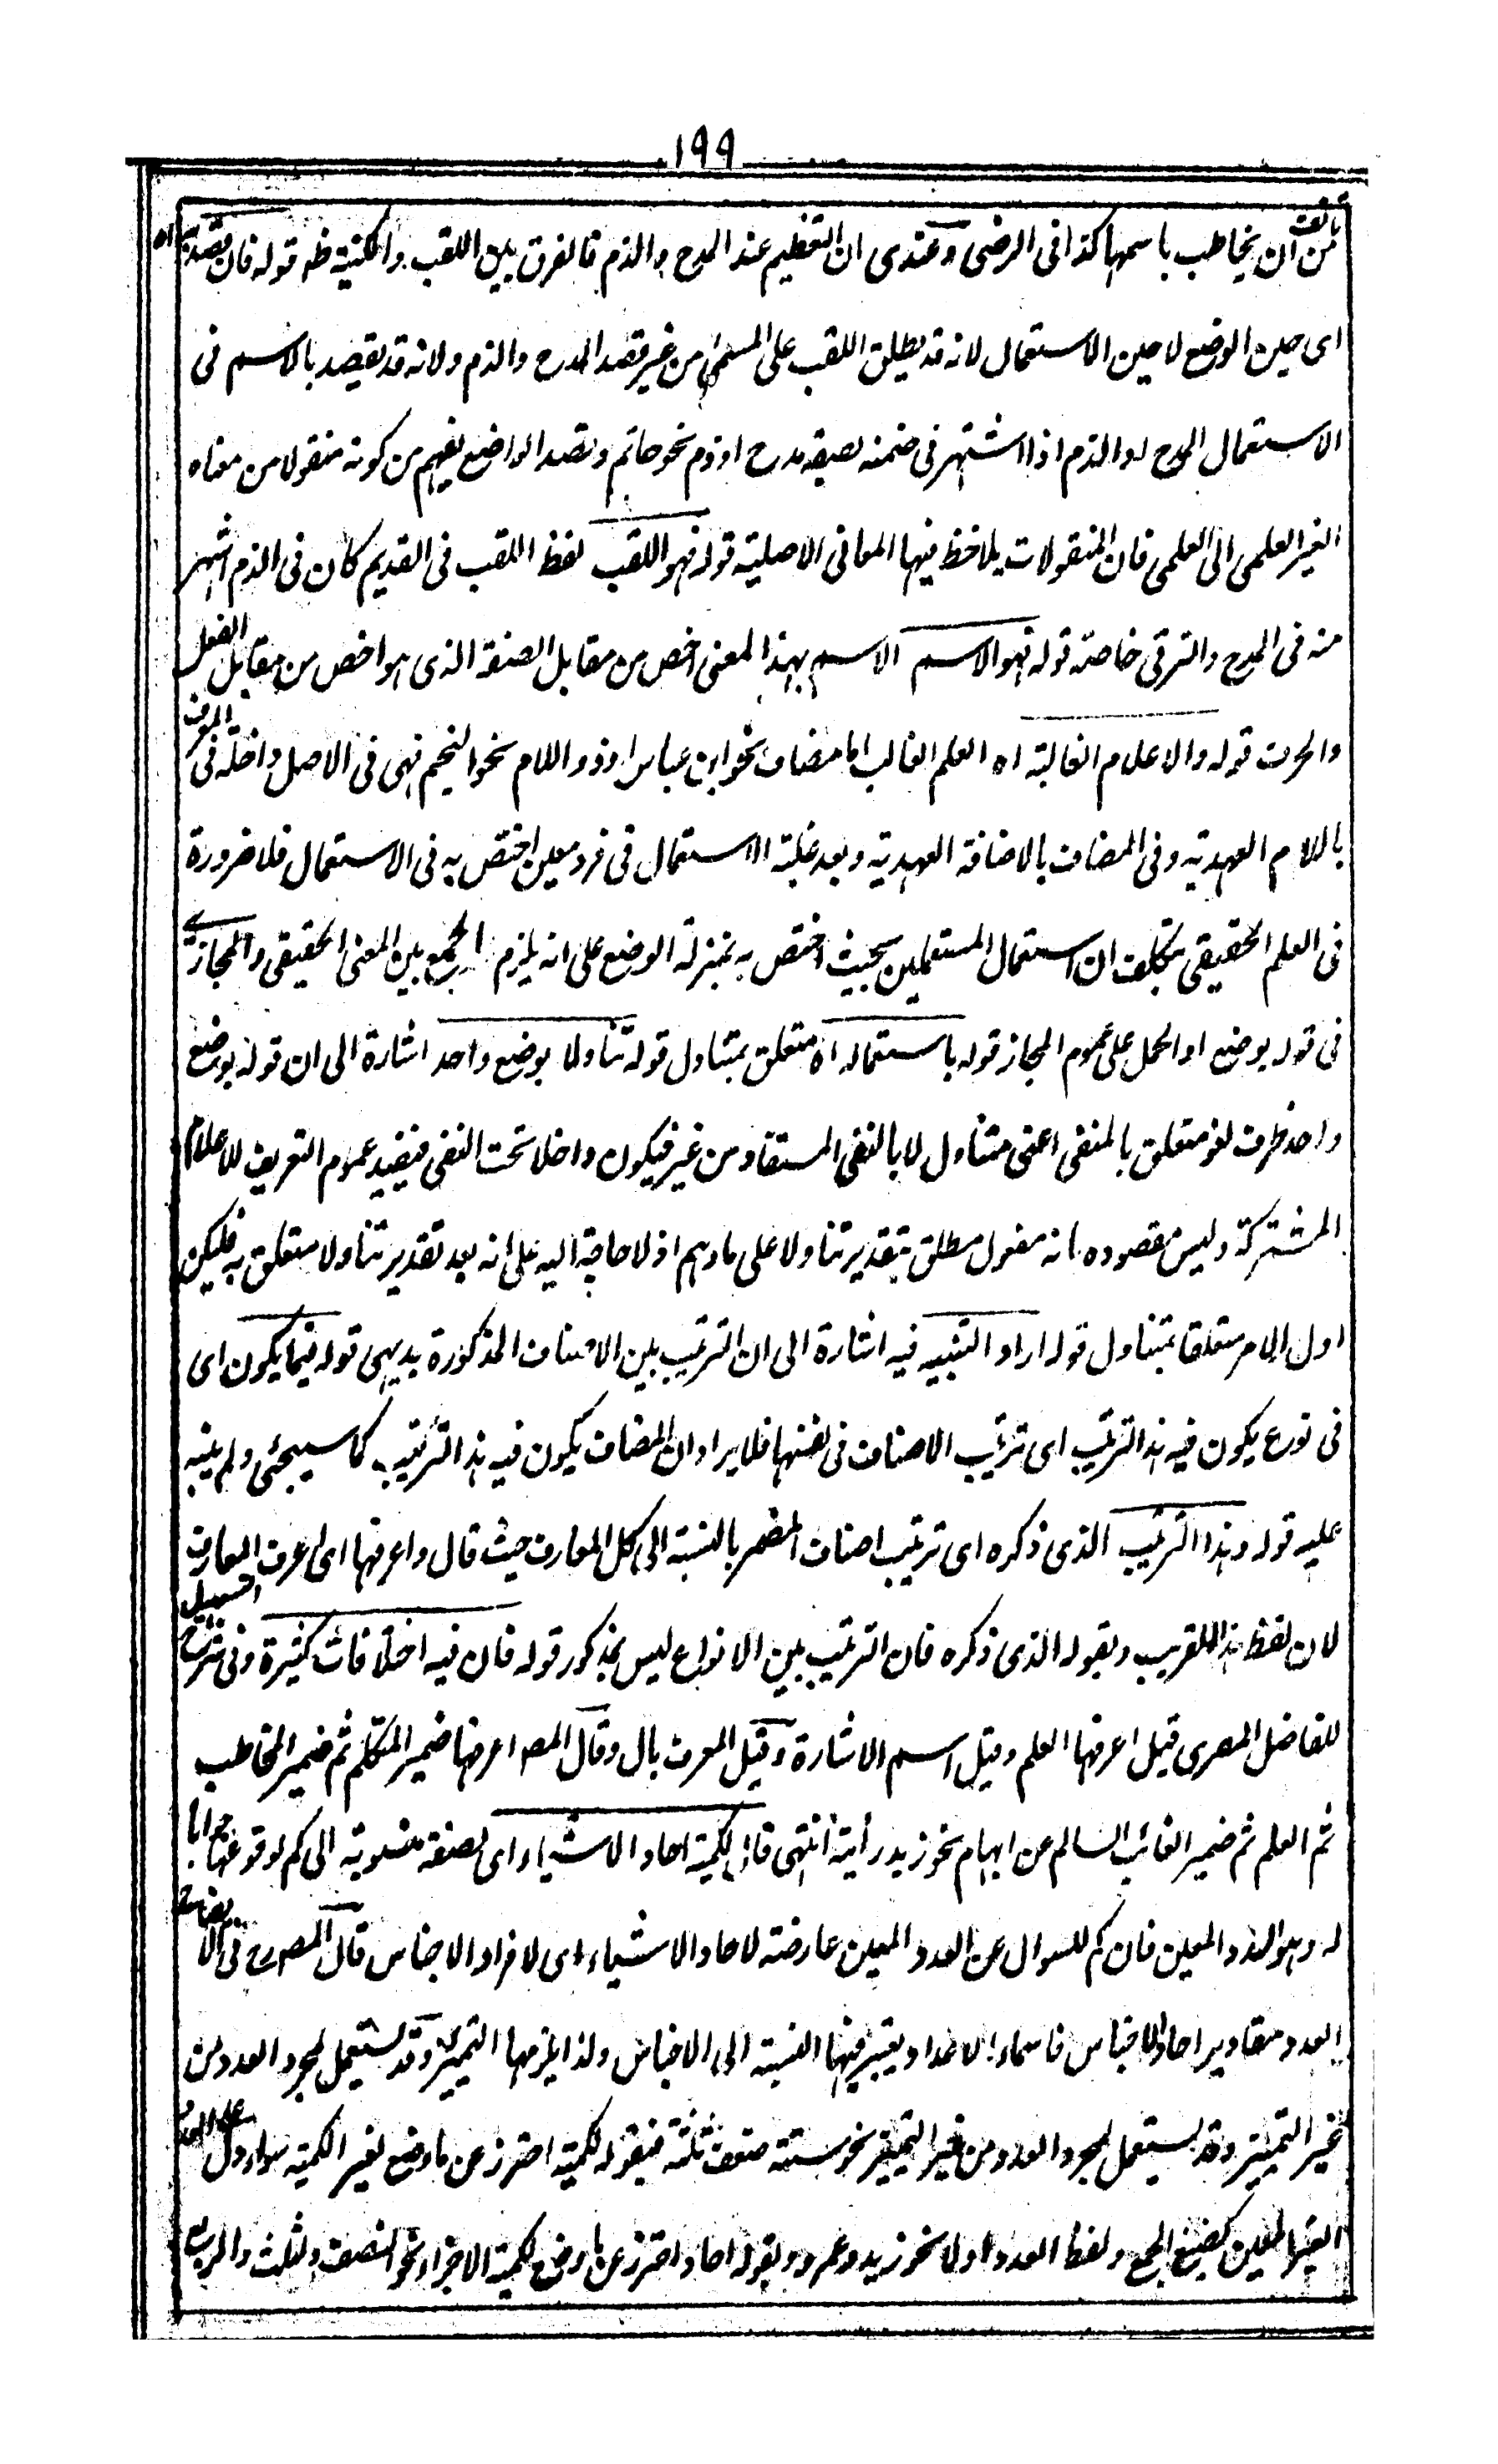 ١٩٩
تأنف
من ان يخاطب باسمها كذا فى الرضى وعندى ان التعظيم عند المدح والذم فالفرق بين اللقب والكنية ظه قوله فان قصد به اه
اى حين الوضع لا حين الاستعمال لانه قد يطلق اللقب على المسمى من غير قصد المدح والذم ولانه قد يقصد بالاسم فى
الاستعمال المدح او الذم اذا اشتهر فى ضمنه بصفة مدح او ذم نحو حاتم وقصد الواضع يفهم من كونه منقولا من معناه
الغير العلمى الى العلمى فان المنقولات يلاحظ فيها المعانى الاصلية قوله فهو اللقب لفظ اللقب فى القديم كان فى الذم اشهر
منه فى المدح والترقى خاصة قوله فهو الاسم الاسم بهذا المعنى اخص من مقابل الصفة الذى هو اخص من مقابل الفعل
والحرف قوله والاعلام الغالبة اه العلم الغالب اما مضاف نحو ابن عباس او ذو اللام نحو النجم فهى فى الاصل داخلة فى المعرف
باللام العهدية وفى المضاف بالاضافة العهدية وبعد غلبة الاستعمال فى فرد معين اختص به فى الاستعمال فلا ضرورة
فى العلم الحقيقى بتكلف ان استعمال المستعملين بحيث اختص به بمنزلة الوضع على انه يلزم الجمع بين المعنى الحقيقى والمجازى
فى قوله بوضع او الحمل على عموم المجاز قوله باستعماله اه متعلق بمتناول قوله تناولا بوضع واحد اشارة الى ان قوله بوضع
واحد ظرف لغو متعلق بالمنفى اعنى متناول لا بالنفى المستفاد من غير فيكون داخلا تحت النفى فيفيد عموم التعريف للاعلام
المشتركة وليس مقصوده انه مفعول مطلق بتقدير تناولا على ما وهم اذ لا حاجة اليه على انه بعد تقدير تناولا متعلق به فليكن
اول الامر متعلقا بمتناول قوله اراد التنبيه فيه اشارة الى ان الترتيب بين الاصناف المذكورة بديهى قوله فيما يكون اى
فى نوع يكون فيه هذا الترتيب اى ترتيب الاصناف فى نفسها فلا يراد ان المضاف يكون فيه هذا الترتيب كما سيجئ ولم ينبه
عليه قوله وهذا الترتيب الذى ذكره اى ترتيب اصناف المضمر بالنسبة الى كل المعارف حيث قال واعرفها اى اعرف المعارف
لان لفظ هذا للقريب وبقوله الذى ذكره فان الترتيب بين الانواع ليس بمذكور قوله فان فيه اختلافات كثيرة وفى شرح التسهيل
للفاضل المصرى قيل اعرفها العلم وقيل اسم الاشارة وقيل المعرف بال وقال المصـ اعرفها ضمير المتكلم ثم ضمير المخاطب
ثم العلم ثم ضمير الغائب السالم عن ابهام نحو زيد رأيته انتهى قوله لكمية احاد الاشياء اى لصفة منسوبة الى كم لوقوعها جوابا
له وهو العدد المعين فان كم للسوال عن العدد المعين عارضة لاحاد الاشياء اى لافراد الاجناس قال المصـ رح فى الايضاح
العدد مقادير احاد الاجناس فاسماء الاعداد يعتبر فيها النسبة الى الاجناس ولذا يلزمها التمييز وقد يستعمل لمجرد العدد من
غير التمييز وقد يستعمل لمجرد العدد من غير التمييز نحو ستة ضعف ثلثة فبقوله لكمية احترز عن ما وضع لغير الكمية سواء دل على العدد
الغير المعين كصيغ الجمع ولفظ العدد اولا نحو زيد وعمرو وبقوله احاد احترز عن ما وضع لكمية الاجزاء نحو النصف والثلث والربع